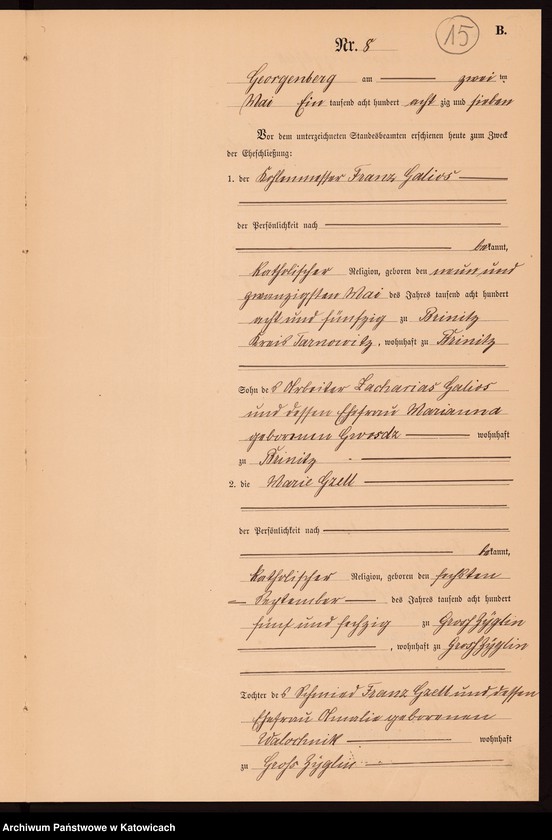 15
B.
Nr. 8
Georgenberg am zwei ten
Mai Ein tausend acht hundert acht zig und sieben
Vor dem unterzeichneten Standesbeamten erschienen heute zum Zweck
der Eheschließung:
1. der Kohlenmesser Franz Galios
der Persönlichkeit nach
bekannt,
katholischer Religion, geboren den neun und
zwanzigsten Mai des Jahres tausend acht hundert
acht und fünfzig zu Brinitz
Kreis Tarnowitz, wohnhaft zu Brinitz
Sohn des Arbeiter Zacharias Galios
und dessen Ehefrau Marianna
geborenen Gwosdz wohnhaft
zu Brinitz
2. die Marie
der Persönlichkeit nach
bekannt,
katholischer Religion, geboren den sechsten
September des Jahres tausend acht hundert
fünf und sechzig zu Groß Zyglin
, wohnhaft zu Groß Zyglin
Tochter des Schmied Franz und dessen
Ehefrau Amalie geborenen
wohnhaft
zu Groß Zyglin
Archiwum Państwowe w Katowicach